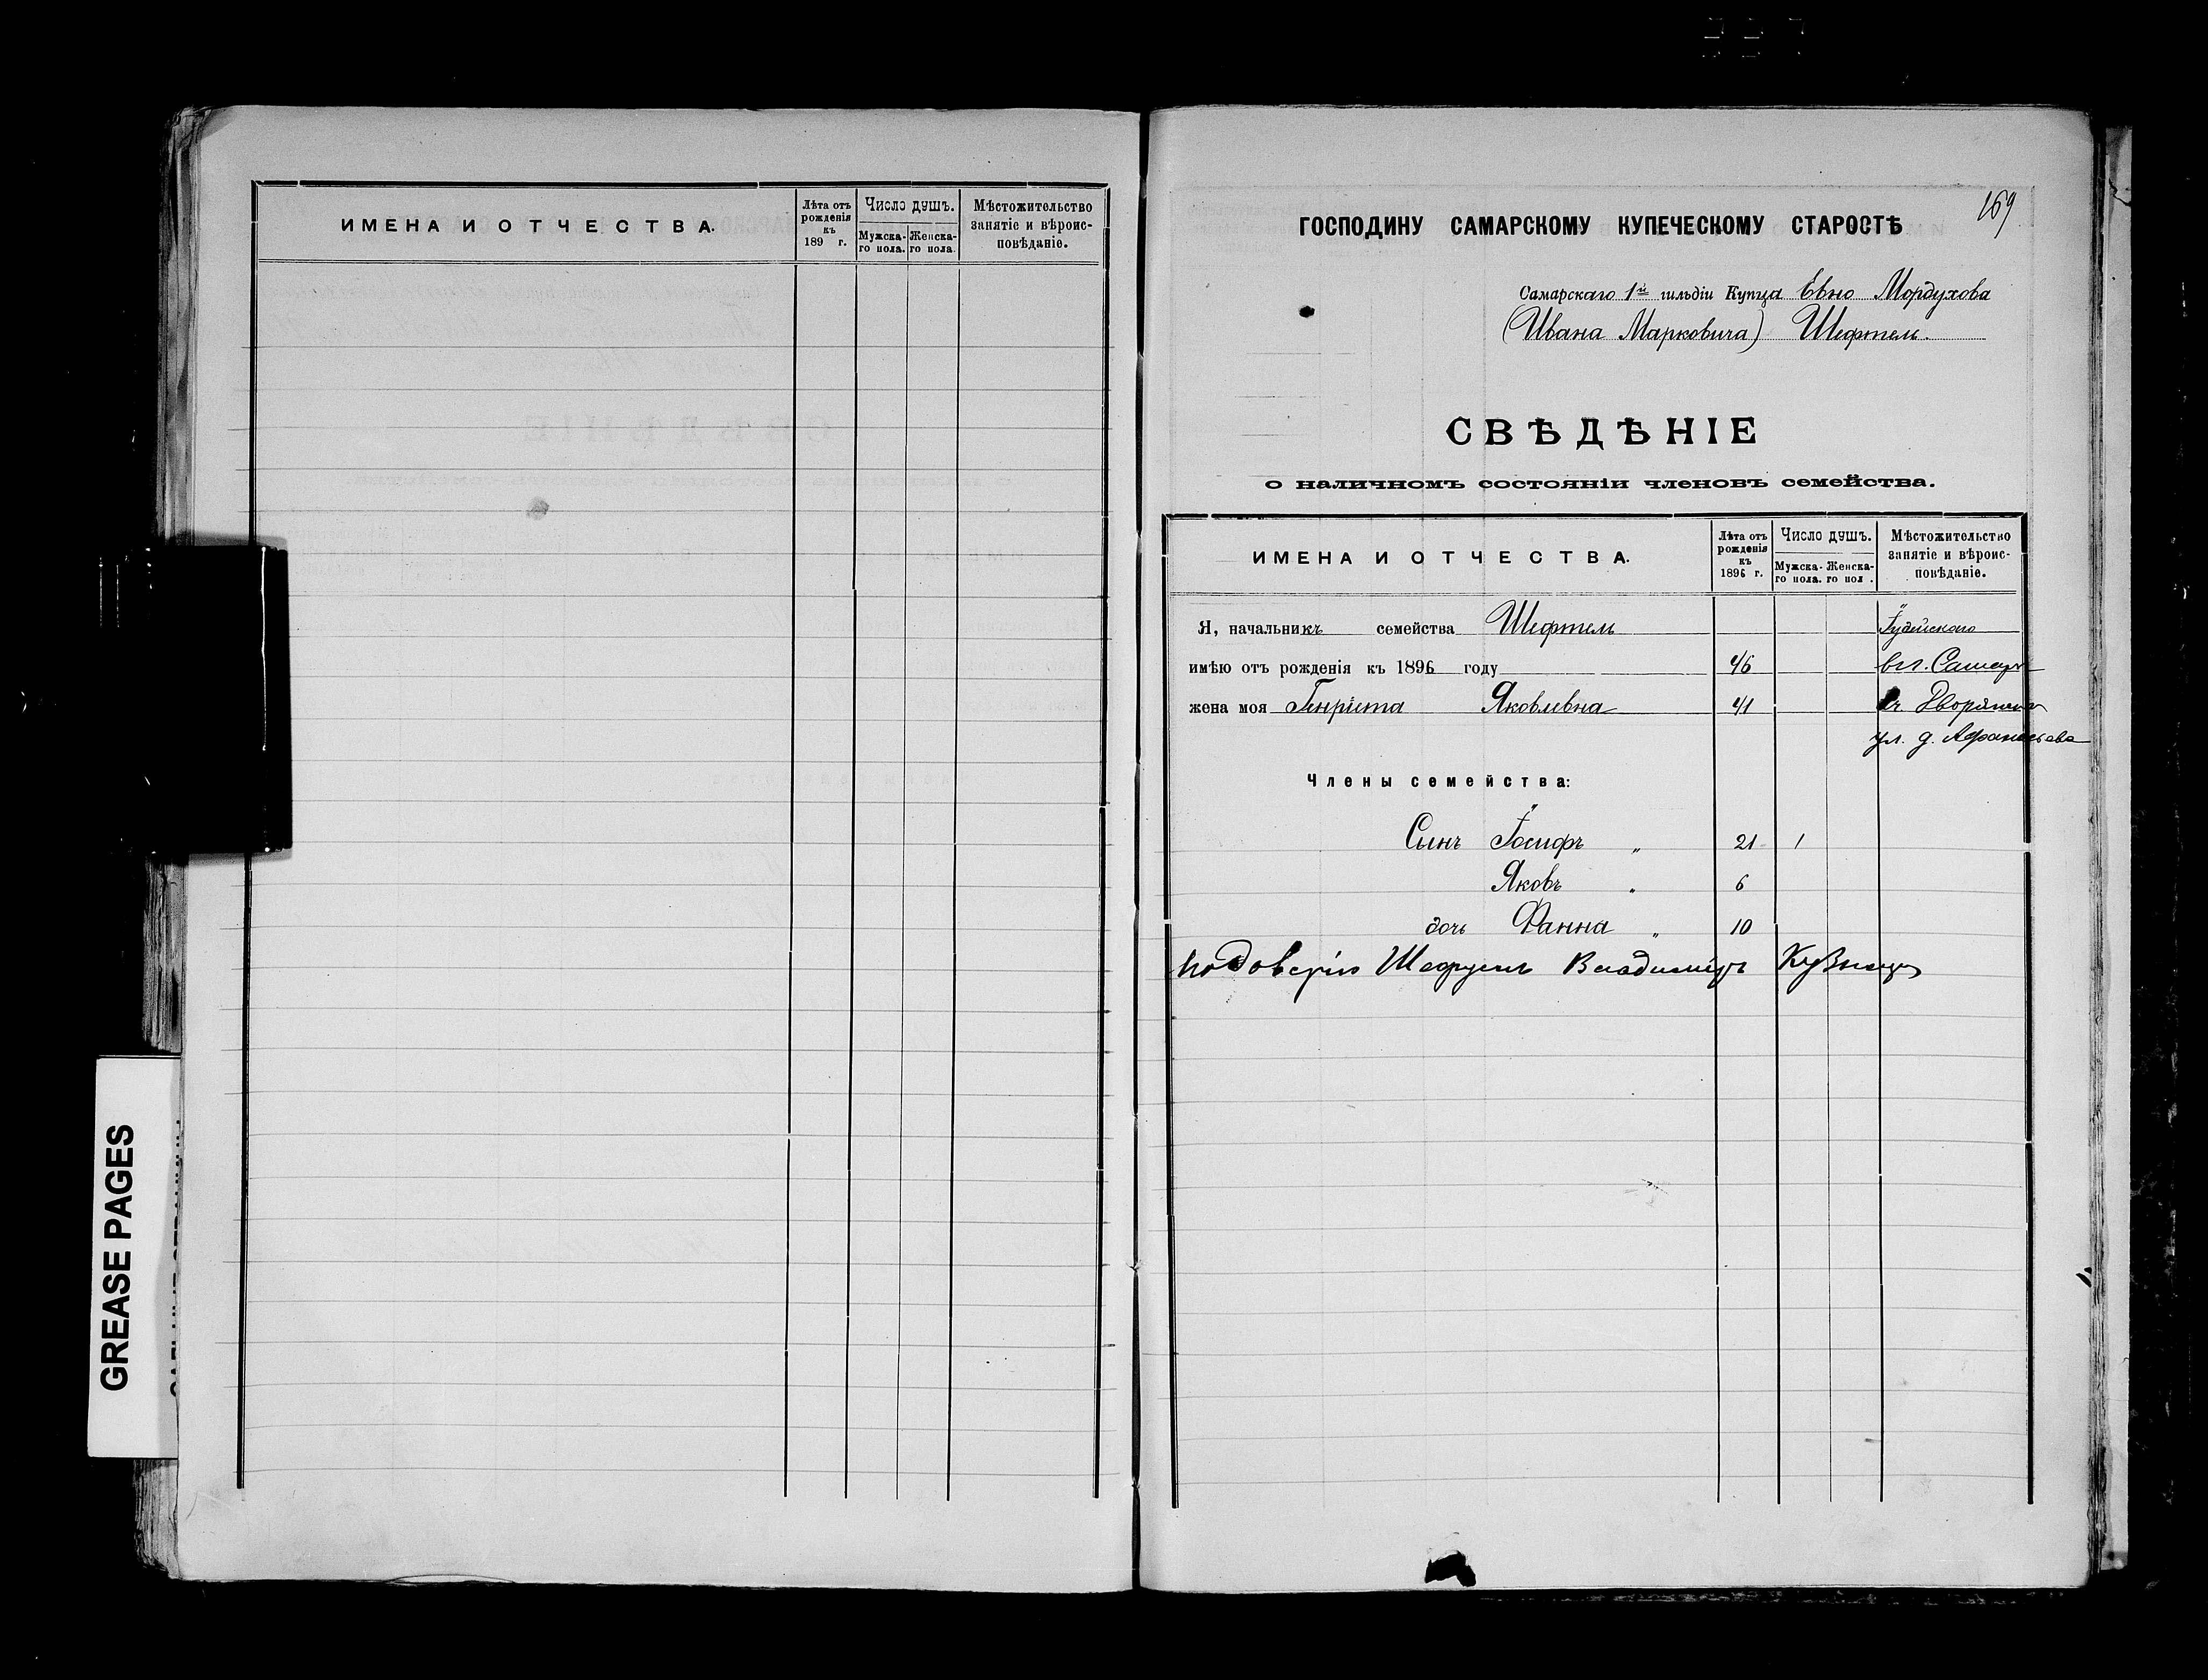 ИМЕНА И ОТЧЕСТВА.
Лѣта отъ рожденія къ 189 г.
Число душъ.
Мужска-го пола.
Женска-го пола
Мѣстожительство занятіе и вѣроис-повѣданіе.
GREASE PAGES
169
ГОСПОДИНУ САМАРСКОМУ КУПЕЧЕСКОМУ СТАРОСТѢ
Самарскаго 1й гильдіи Купца Евно Мордухова
(Ивана Марковича) Шефтель.
СВѢДѢНІЕ
о наличномъ состояніи членовъ семейства.
ИМЕНА И ОТЧЕСТВА.
Лѣта отъ рожденія къ 1896 г.
Число душъ.
Мужска-го пола.
Женска-го пол .
Мѣстожительство занятіе и вѣроис-повѣданіе.
Я, начальникъ семейства Шефтель Іудейскаго
имѣю отъ рожденія къ 1896 году 46 в г. Самарѣ
жена моя Генріета Яковлевна 41 на Дворянск
ул. д. Афанасьева
Члены семейства:
Сынъ Іосифъ „ 21 1
Яковъ „ 6
дочь Фанна „ 10
по довѣрію Владиміръ